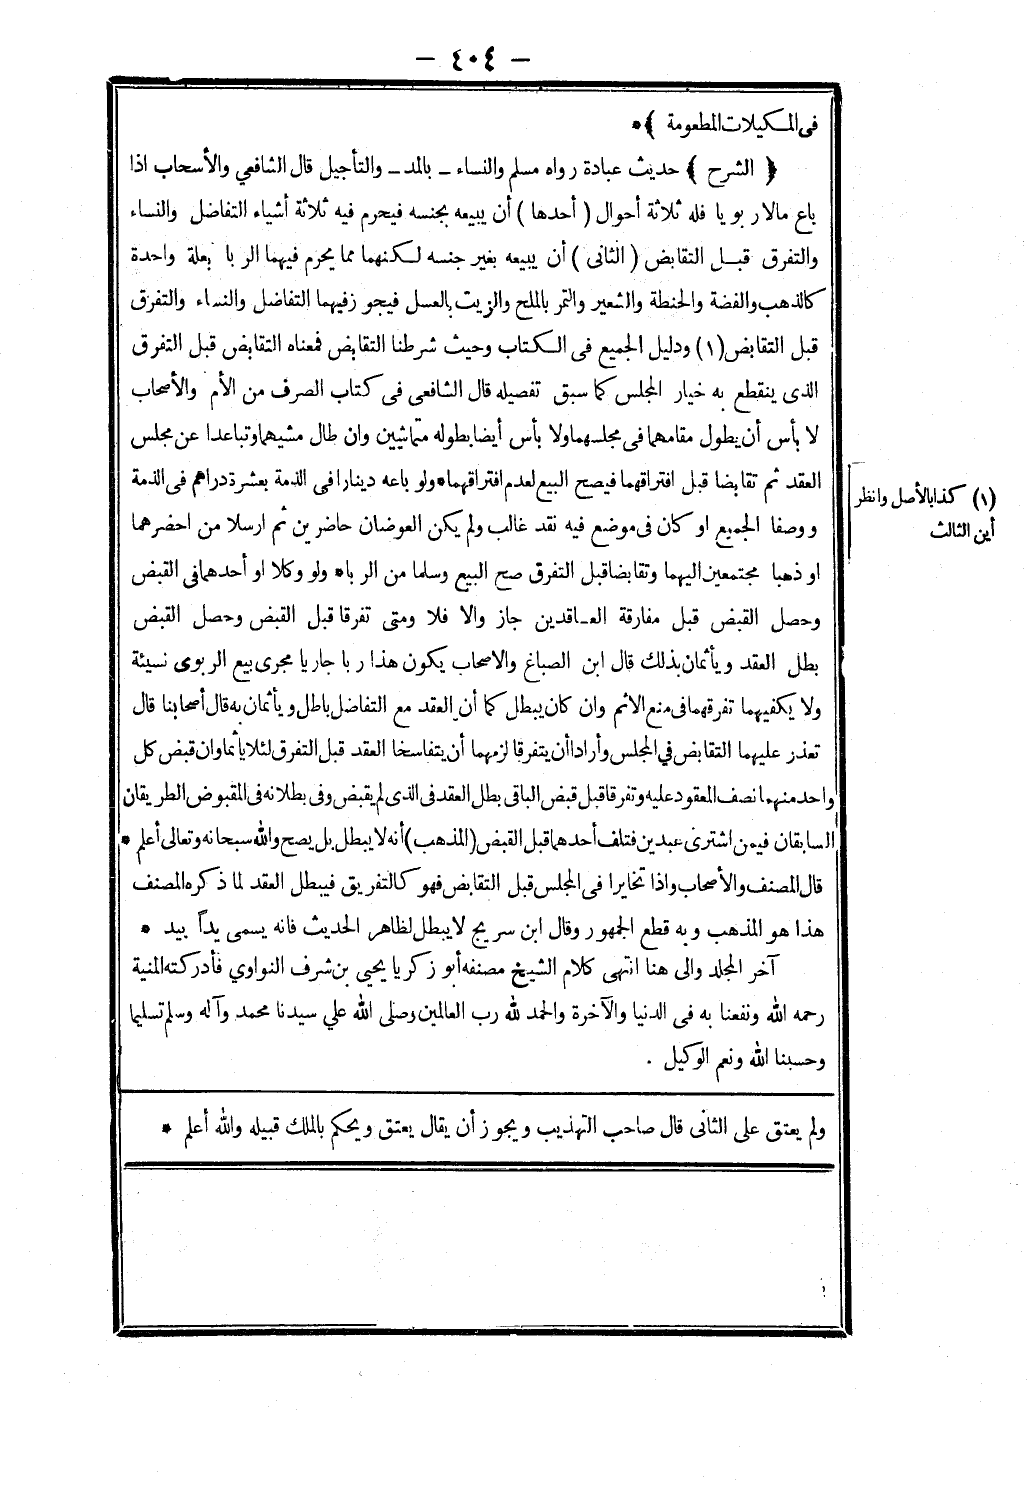 — ٤٠٤ —
فى المكيلات المطعومة ﴾*
﴿ الشرح ﴾ حديث عبادة رواه مسلم والنساء – بالمد – والتأجيل قال الشافعي والأسحاب اذا
باع مالا ربويا فله ثلاثة أحوال ( أحدها ) أن يبيعه بجنسه فيحرم فيه ثلاثة أشياء التفاضل والنساء
والتفرق قبل التقابض ( الثانى ) أن يبيعه بغير جنسه لكنهما مما يحرم فيهما الربا بعلة واحدة
كالذهب والفضة والحنطة والشعير والتمر بالملح والزيت بالعسل فيجوز فيهما التفاضل والنساء والتفرق
قبل التقابض (١) ودليل الجميع فى الكتاب وحيث شرطنا التقابض فمعناه التقابض قبل التفرق
الذى ينقطع به خيار المجلس كما سبق تفصيله قال الشافعى فى كتاب الصرف من الأم والأصحاب
لا بأس أن يطول مقامهما فى مجلسهما ولا بأس أيضا بطوله متماشيين وان طال مشيهما وتباعدا عن مجلس
العقد ثم تقابضا قبل افتراقهما فيصح البيع لعدم افتراقهما* ولو باعه دينارا فى الذمة بعشرة دراهم فى الذمة
ووصفا الجميع او كان فى موضع فيه نقد غالب ولم يكن العوضان حاضرين ثم ارسلا من احضرهما
او ذهبا مجتمعين اليهما وتقابضا قبل التفرق صح البيع وسلما من الربا* ولو وكلا او أحدهما فى القبض
وحصل القبض قبل مفارقة العاقدين جاز والا فلا ومتى تفرقا قبل القبض وحصل القبض
بطل العقد ويأثمان بذلك قال ابن الصباغ والاصحاب يكون هذا ربا جاريا مجرى بيع الربوى نسيئة
ولا يكفيهما تفرقهما فى منع الاثم وان كان يبطل كما أن العقد مع التفاضل باطل ويأثمان به قال أصحابنا قال
تعذر عليهما التقابض في المجلس وأرادا أن يتفرقا لزمهما أن يتفاسخا العقد قبل التفرق لئلا يأثما وان قبض كل
واحد منهما نصف المعقود عليه وتفرقا قبل قبض الباقى بطل العقد فى الذى لم يقبض وفى بطلانه فى المقبوض الطريقان
السابقان فيمن اشترى عبدين فتلف أحدهما قبل القبض (المذهب) أنه لا يبطل بل يصح والله سبحانه وتعالى أعلم *
قال المصنف والأصحاب واذا تخايرا فى المجلس قبل التقابض فهو كالتفريق فيبطل العقد لما ذكره المصنف
هذا هو المذهب وبه قطع الجمهور وقال ابن سريج لا يبطل لظاهر الحديث فانه يسمى يداً بيد *
آخر المجلد والى هنا انتهى كلام الشيخ مصنفه أبو زكريا يحيى بن شرف النواوي فأدركته المنية
رحمه الله ونفعنا به فى الدنيا والآخرة والحمد لله رب العالمين وصلى الله علي سيدنا محمد وآله وسلم تسليما
وحسبنا الله ونعم الوكيل .
ولم يعتق على الثانى قال صاحب التهذيب ويجوز أن يقال يعتق ويحكم بالملك قبيله والله أعلم *
(١) كذا بالأصل وانظر
أين الثالث